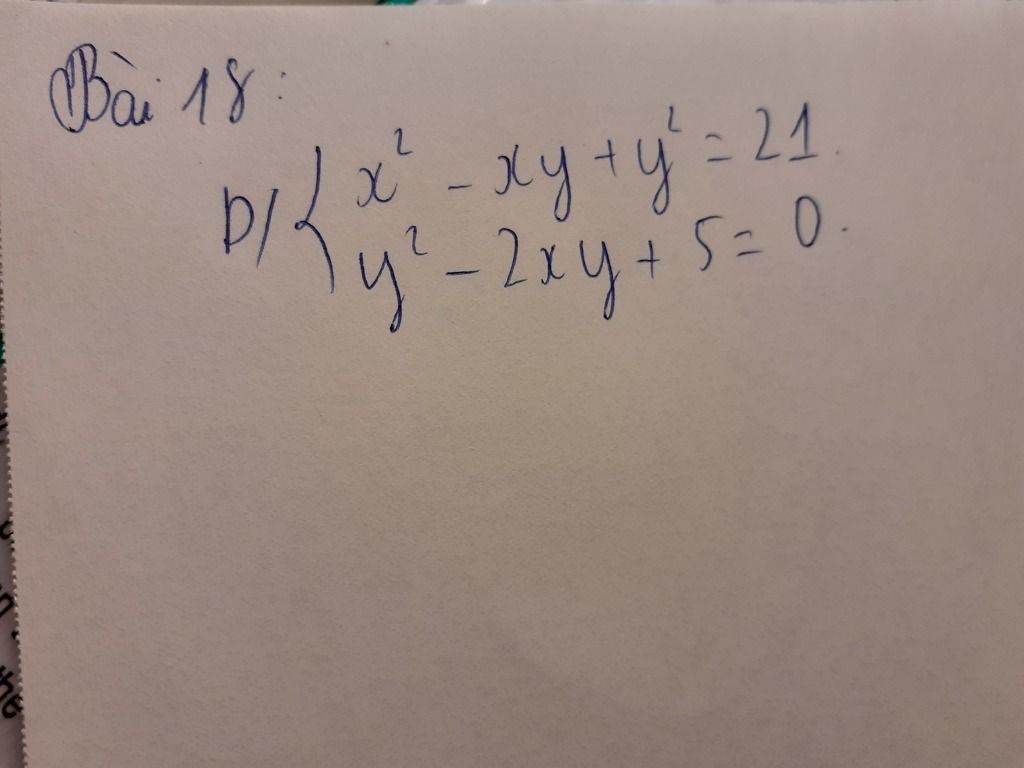 Bài 18:
D/ { x² - xy + y² = 21.
y² - 2xy + 5 = 0.